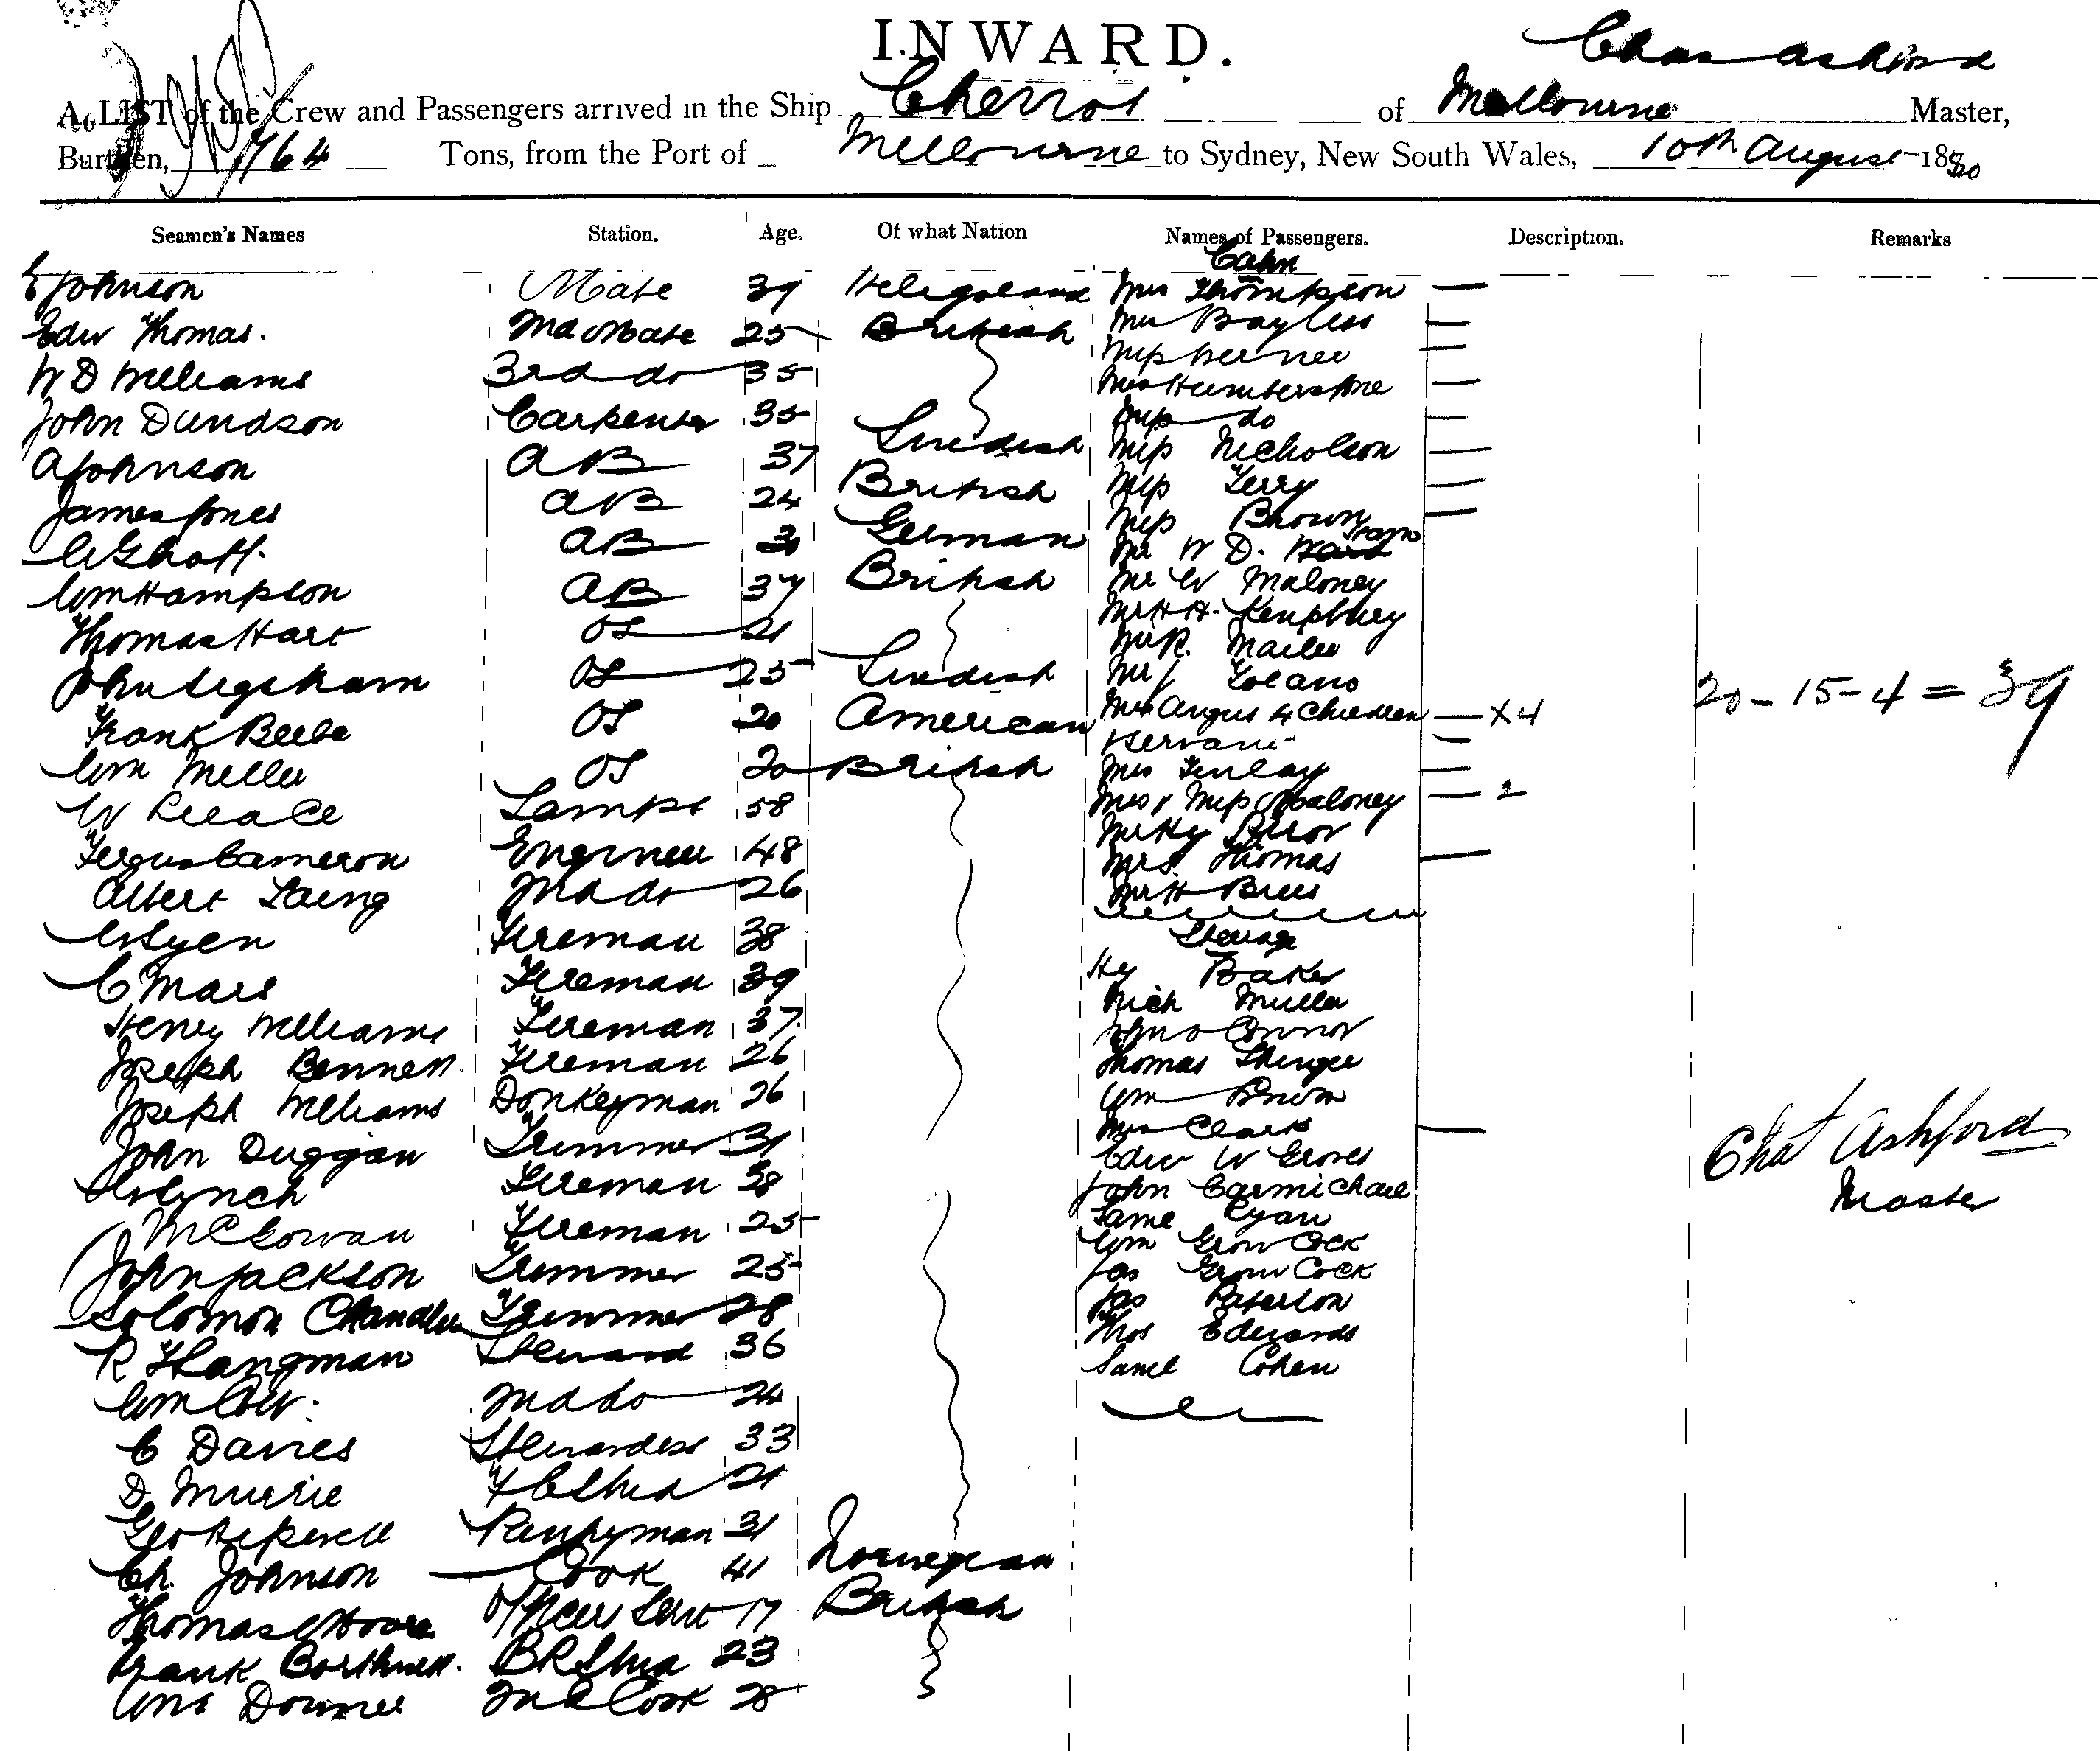 INWARD.
Chas Ashford
A LIST of the Crew and Passengers arrived in the Ship Cheviot of Melbourne Master,
Burthen, 764 Tons, from the Port of Melbourne to Sydney, New South Wales, 10th August 1880
Seamen's Names Station. Age. Of what Nation Names of Passengers. Description. Remarks
Cabin
Johnson Mate 39 Heligoland Mrs Thompson —
Edw Thomas. 2nd Mate 25 British Mrs Bayless —
W D Williams 3rd do 35 Miss —
Mrs Humberstone —
John Davidson Carpenter 35 Miss do —
A Johnson AB 37 Swedish Miss Nicholson —
James Jones AB 24 British Miss Terry —
AB German Miss Brown —
Mr W D.
Wm Hampson AB 37 British Mr W Maloney
Mr H H. Kempbury
Thomas Hart OS 21 Mr R.
John OS 25 Swedish Mr J
Frank Beebe OS 20 American Mrs Angus 4 Children — X4
20 - 15 - 4 = 39
Servant —
Wm Miller OS 20 British Mrs Finlay —
W Lamps 58 Mrs & Miss Maloney — 2
Mr Hy
Fergus Cameron Engineer 48 Mrs Thomas —
Albert Laing 2nd do 26 Mr H
Steerage
Fireman 38
C Mars Fireman 39 Hy Baker
Rich Muller
Henry Williams Fireman 37 John O Connor
Joseph Bennett Fireman 26 Thomas
Joseph Williams Donkeyman 26 Wm Brown
John Duggan Trimmer 31 Mrs Clark —
Chas Ashford
Master
Edw W Groves
Lynch Fireman 38 John Carmichael
McGowan Fireman 25 Ryan
Wm Growcock
John Jackson Trimmer 25 Jas Growcock
Solomon Chandler Trimmer 28 Jas Paterson
Thos Edwards
R Hangman Steward 36 Saml Cohen
Wm 2nd do 24
C Davies Stewardess 33
D Murrie 21
Geo Pantryman 31
Ch. Johnson Cook 41 Norwegian
Thomas Moore Officers Servt 17 British
Frank Borthwick. 23
Wm 2nd Cook 28